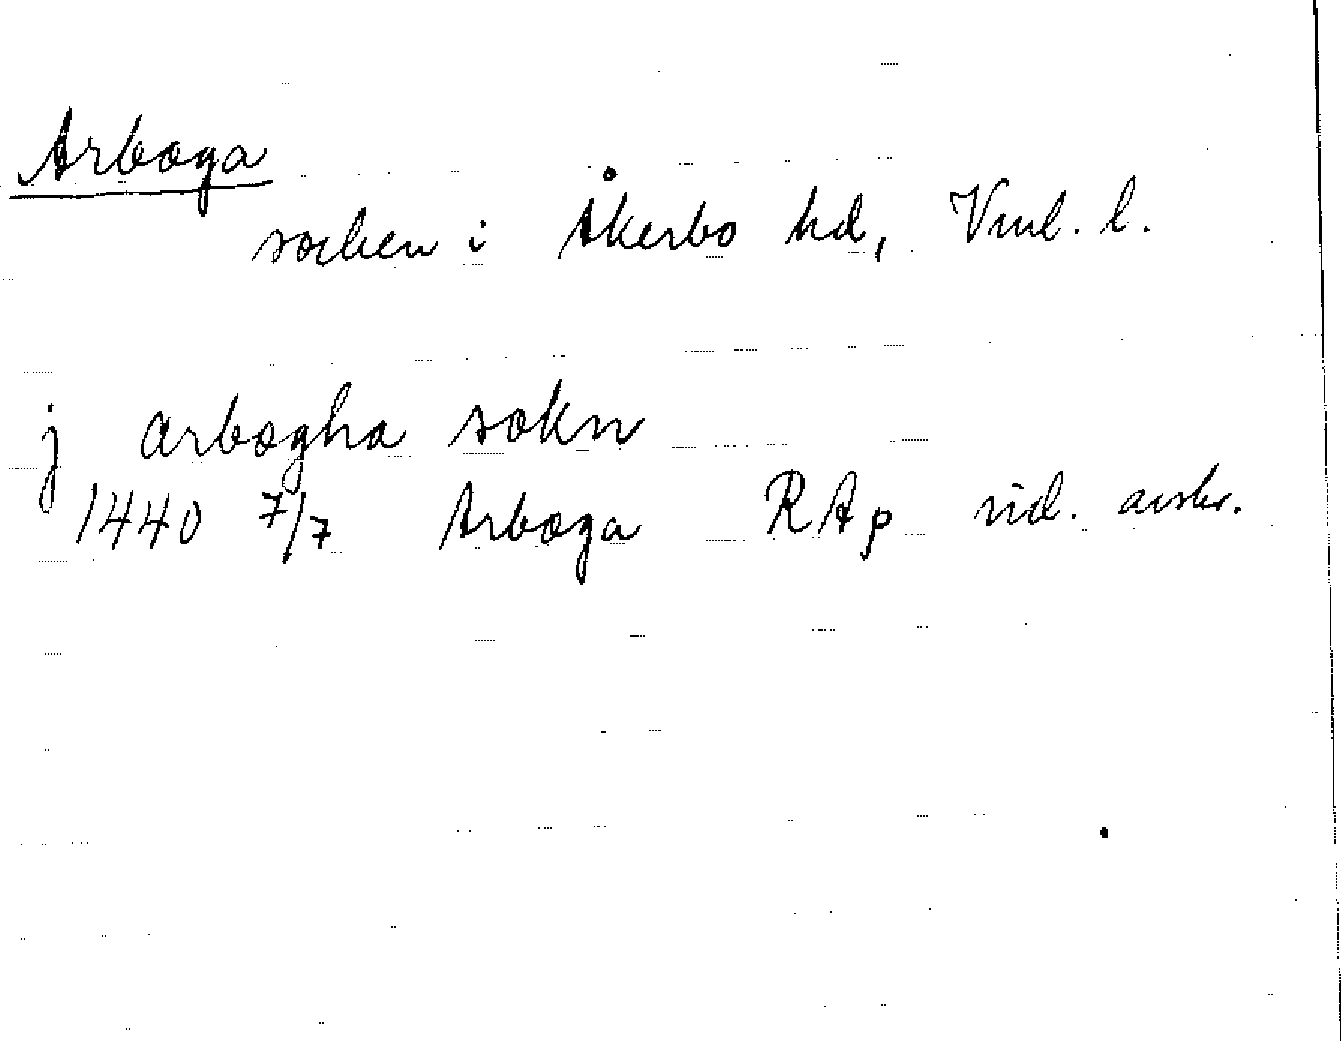 Arboga
socken i Åkerbo hd, Vml. l.
j arbogha sokn
1440 7/7 Arboga RAp vid. avskr.